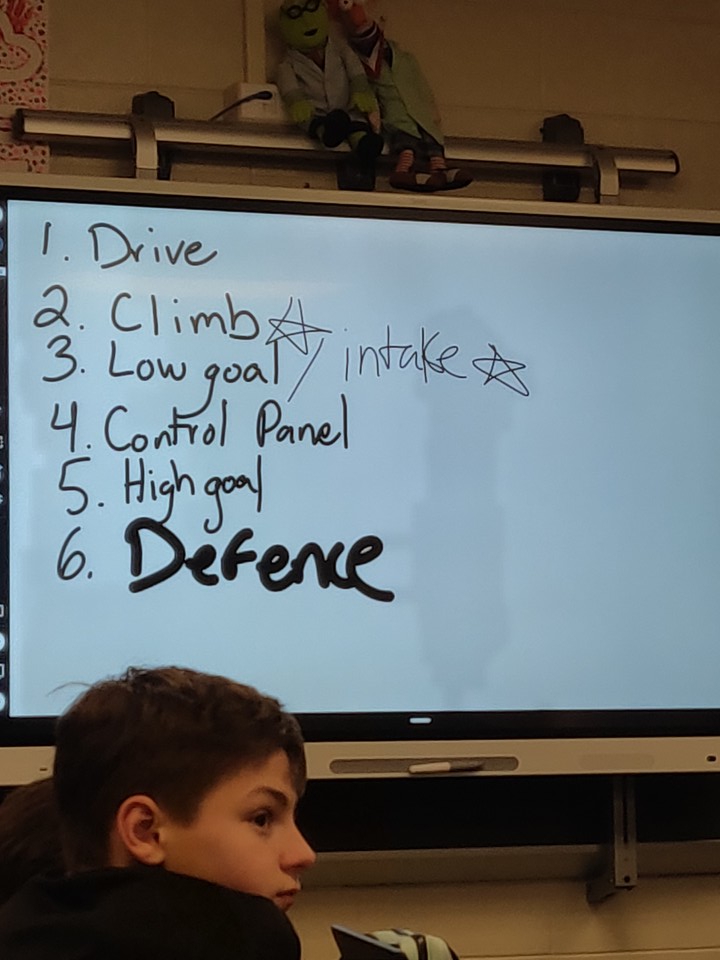 1. Drive
2. Climb ☆
3. Low goal / intake ☆
4. Control Panel
5. High goal
6. Defence